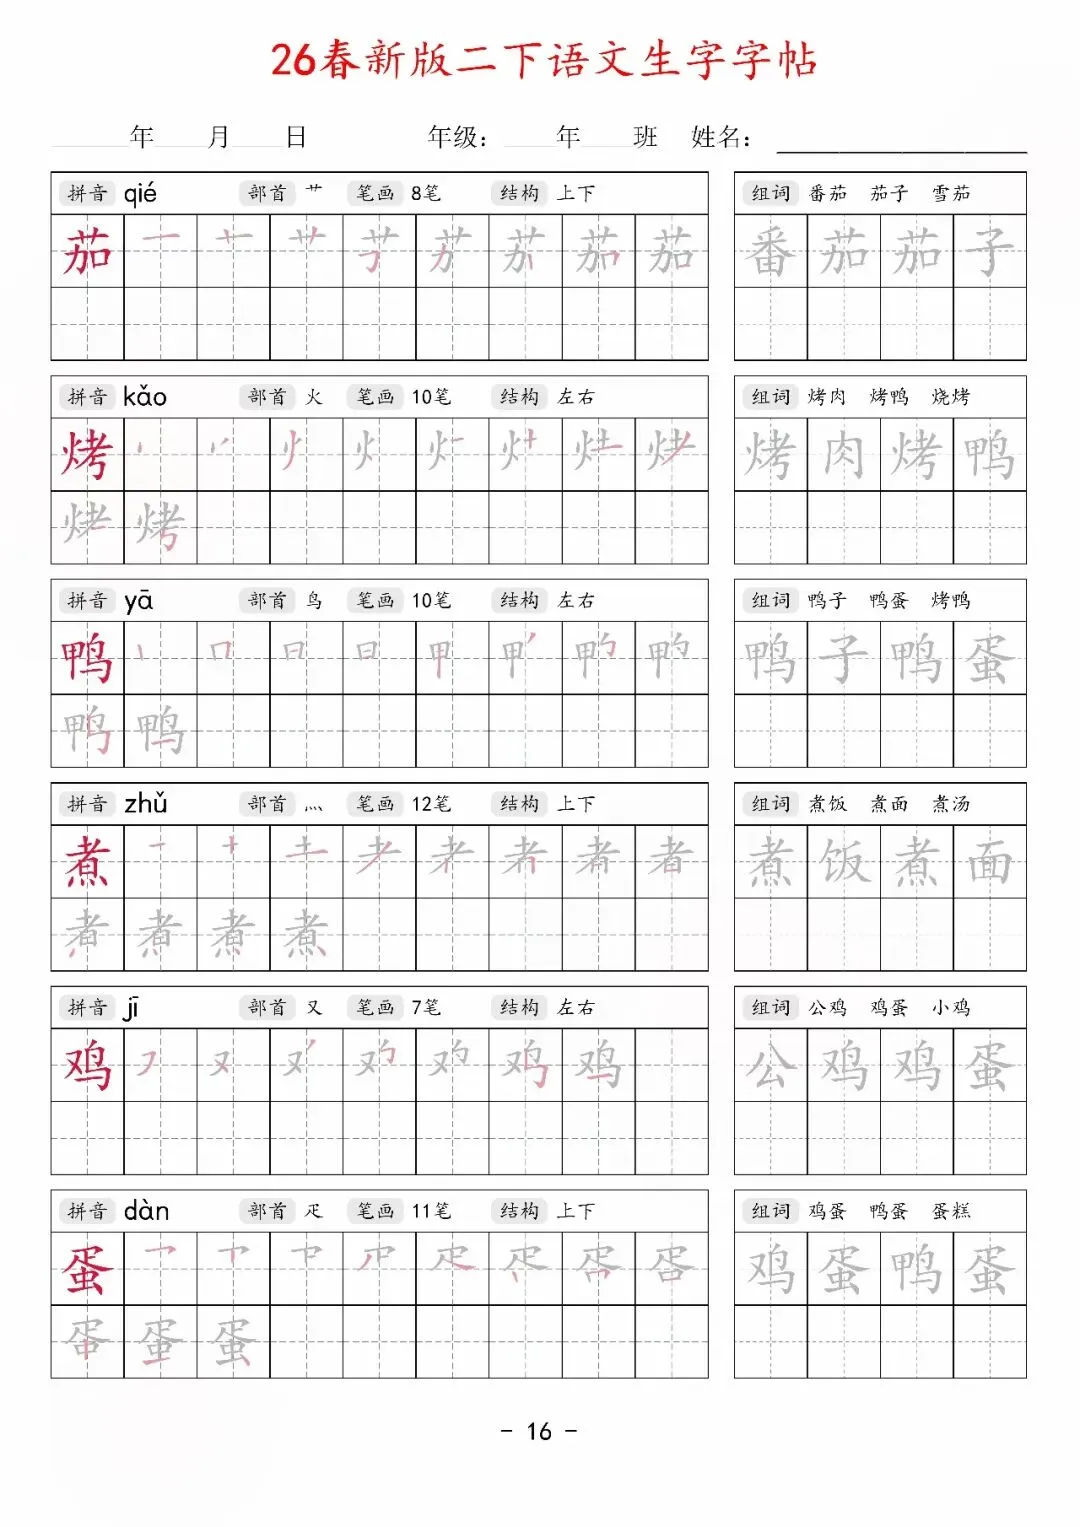 26春新版二下语文生字字帖
年 月 日 年级： 年 班 姓名：
拼音 qié 部首 艹 笔画 8笔 结构 上下 组词 番茄 茄子 雪茄
茄 番茄茄子
拼音 kǎo 部首 火 笔画 10笔 结构 左右 组词 烤肉 烤鸭 烧烤
烤 烤肉烤鸭
烤
拼音 yā 部首 鸟 笔画 10笔 结构 左右 组词 鸭子 鸭蛋 烤鸭
鸭 鸭子鸭蛋
鸭
拼音 zhǔ 部首 灬 笔画 12笔 结构 上下 组词 煮饭 煮面 煮汤
煮 煮饭煮面
煮
拼音 jī 部首 又 笔画 7笔 结构 左右 组词 公鸡 鸡蛋 小鸡
鸡 鸡 公鸡鸡蛋
拼音 dàn 部首 疋 笔画 11笔 结构 上下 组词 鸡蛋 鸭蛋 蛋糕
蛋 鸡蛋鸭蛋
蛋
- 16 -